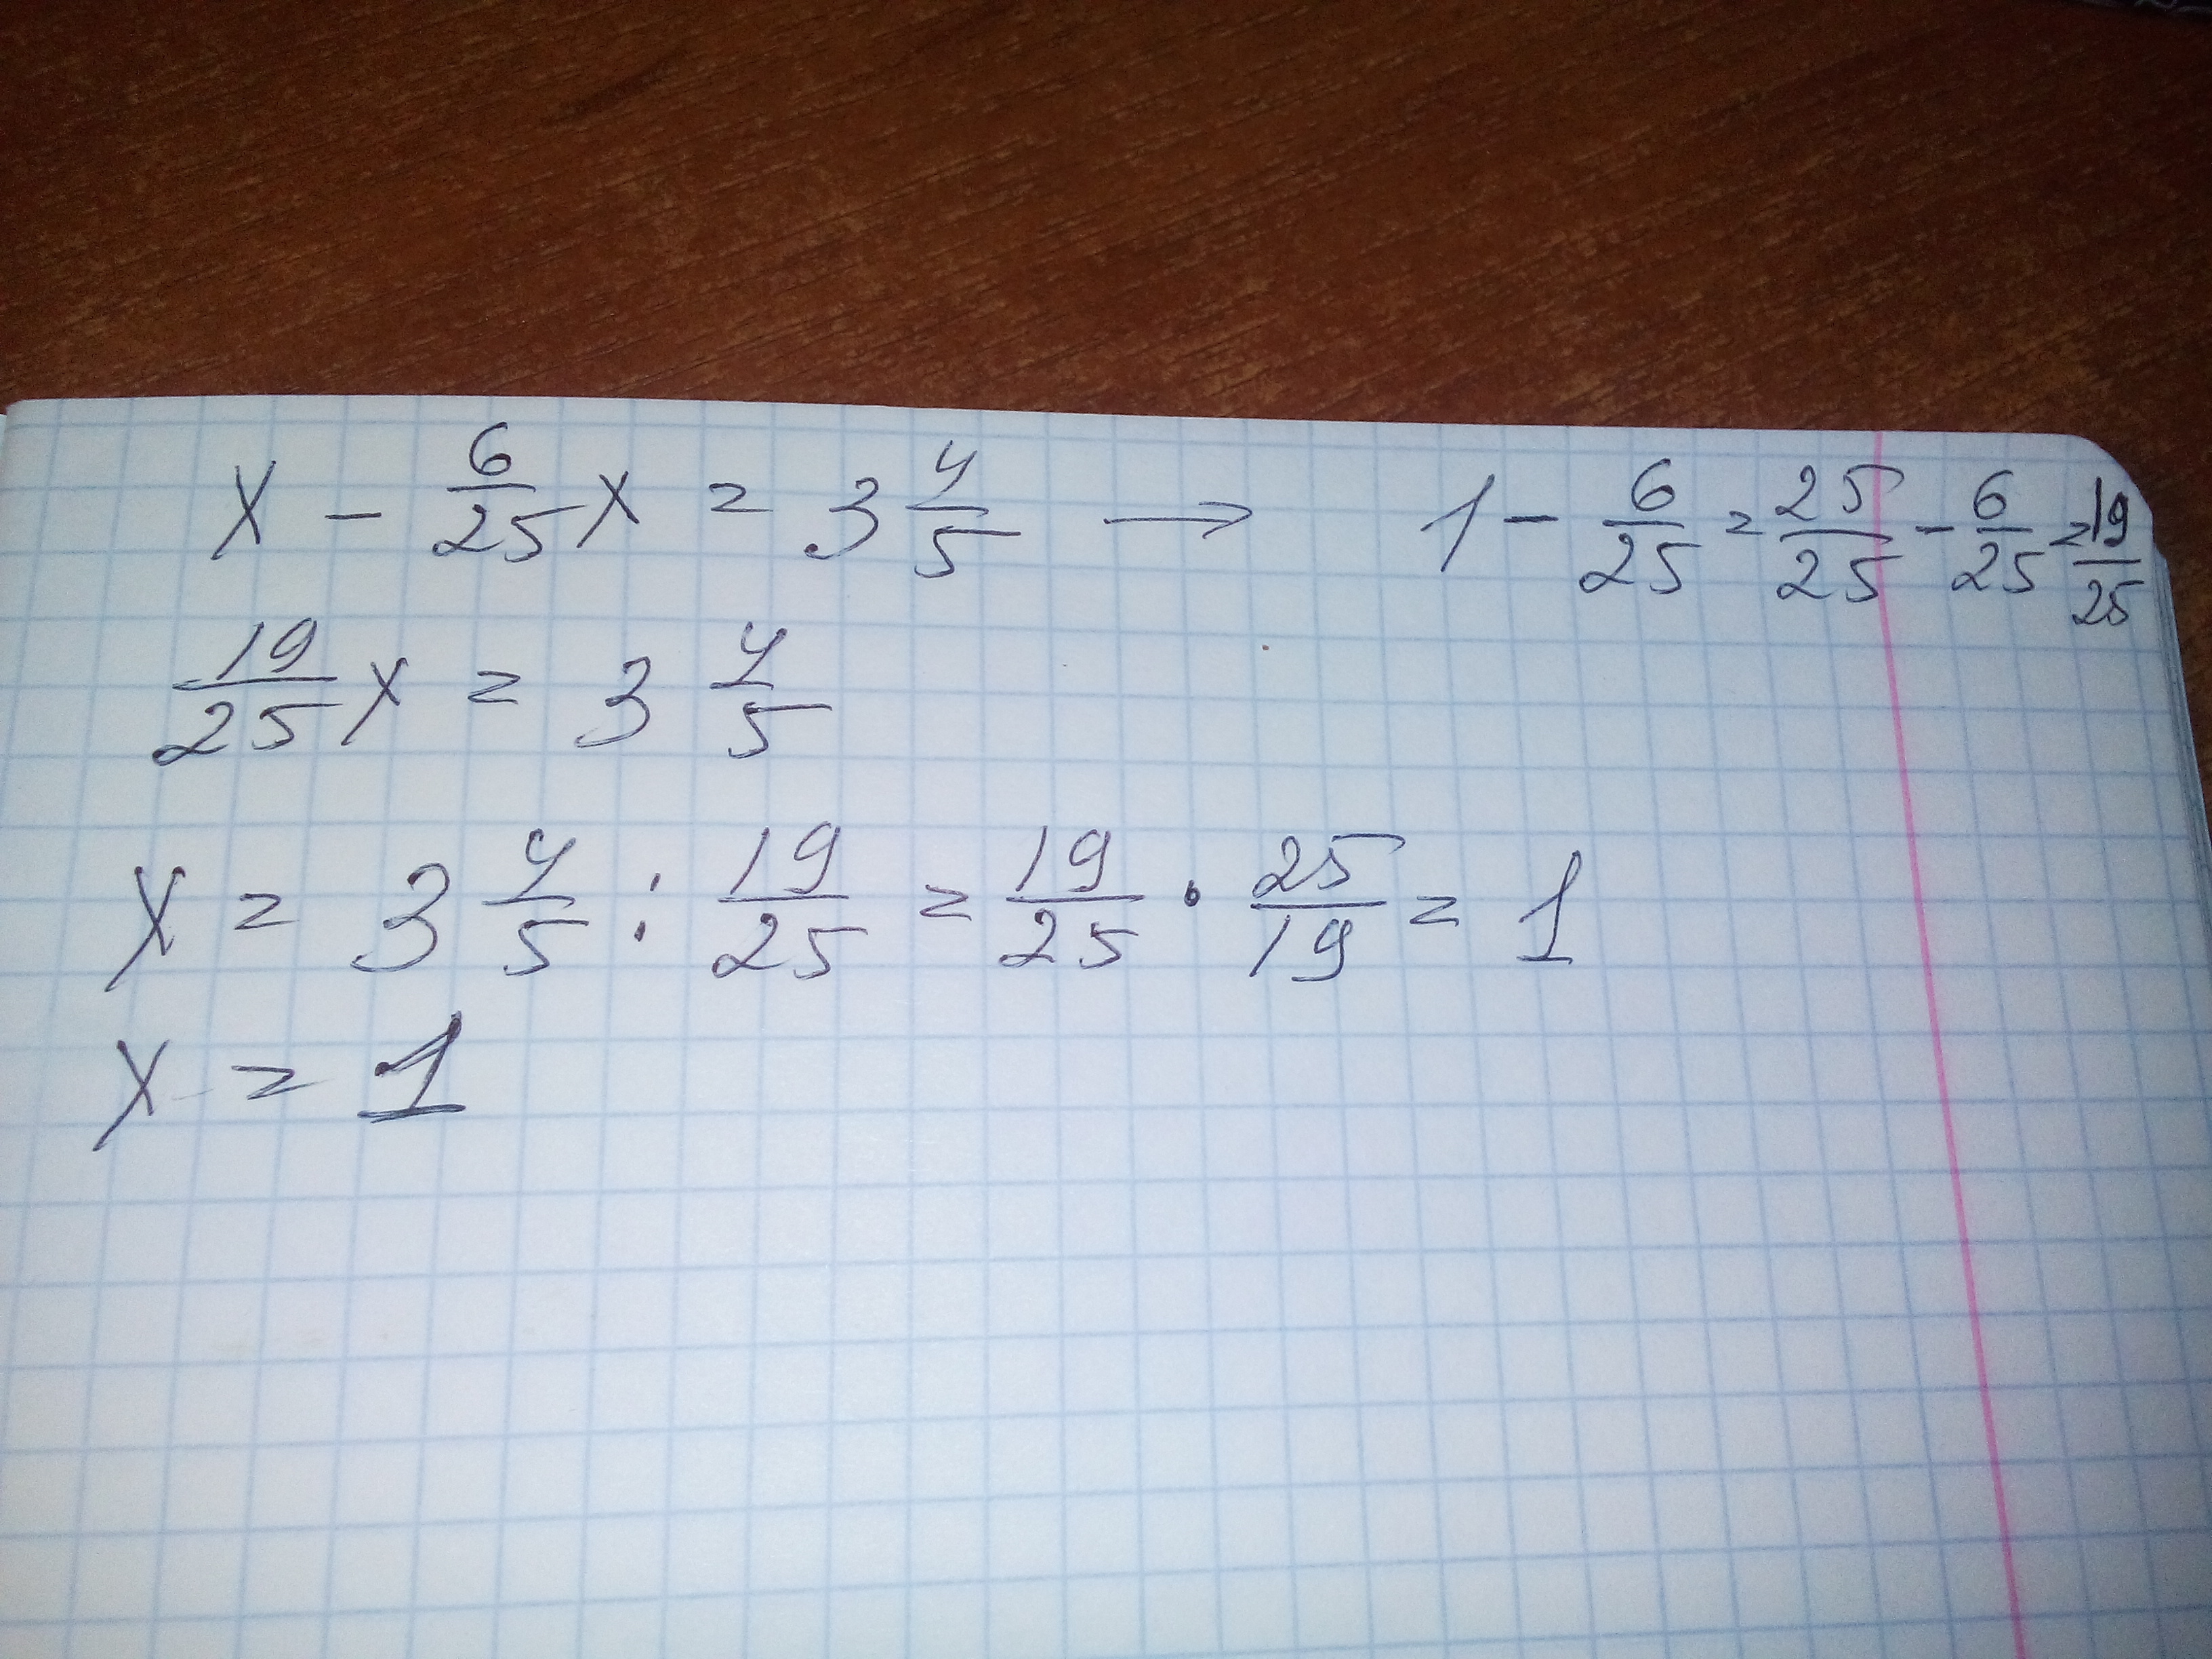 x - 6/25 x = 3 4/5 → 1 - 6/25 = 25/25 - 6/25 = 19/25
19/25 x = 3 4/5
x = 3 4/5 : 19/25 = 19/25 · 25/19 = 1
x = 1